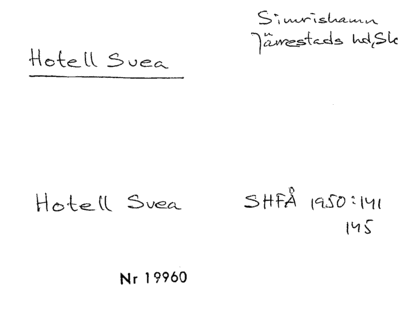 Simrishamn
Järrestads hd, Sk
Hotell Svea
Hotell Svea SHFÅ 1950:141
145
Nr 19960